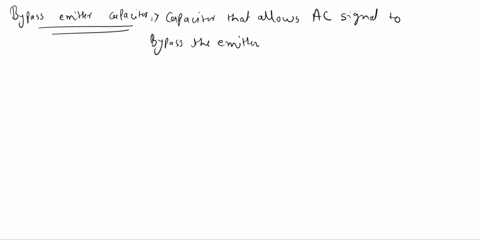 Bypass emitter capacitor :→ Capacitor that allows AC signal to
Bypass the emitter